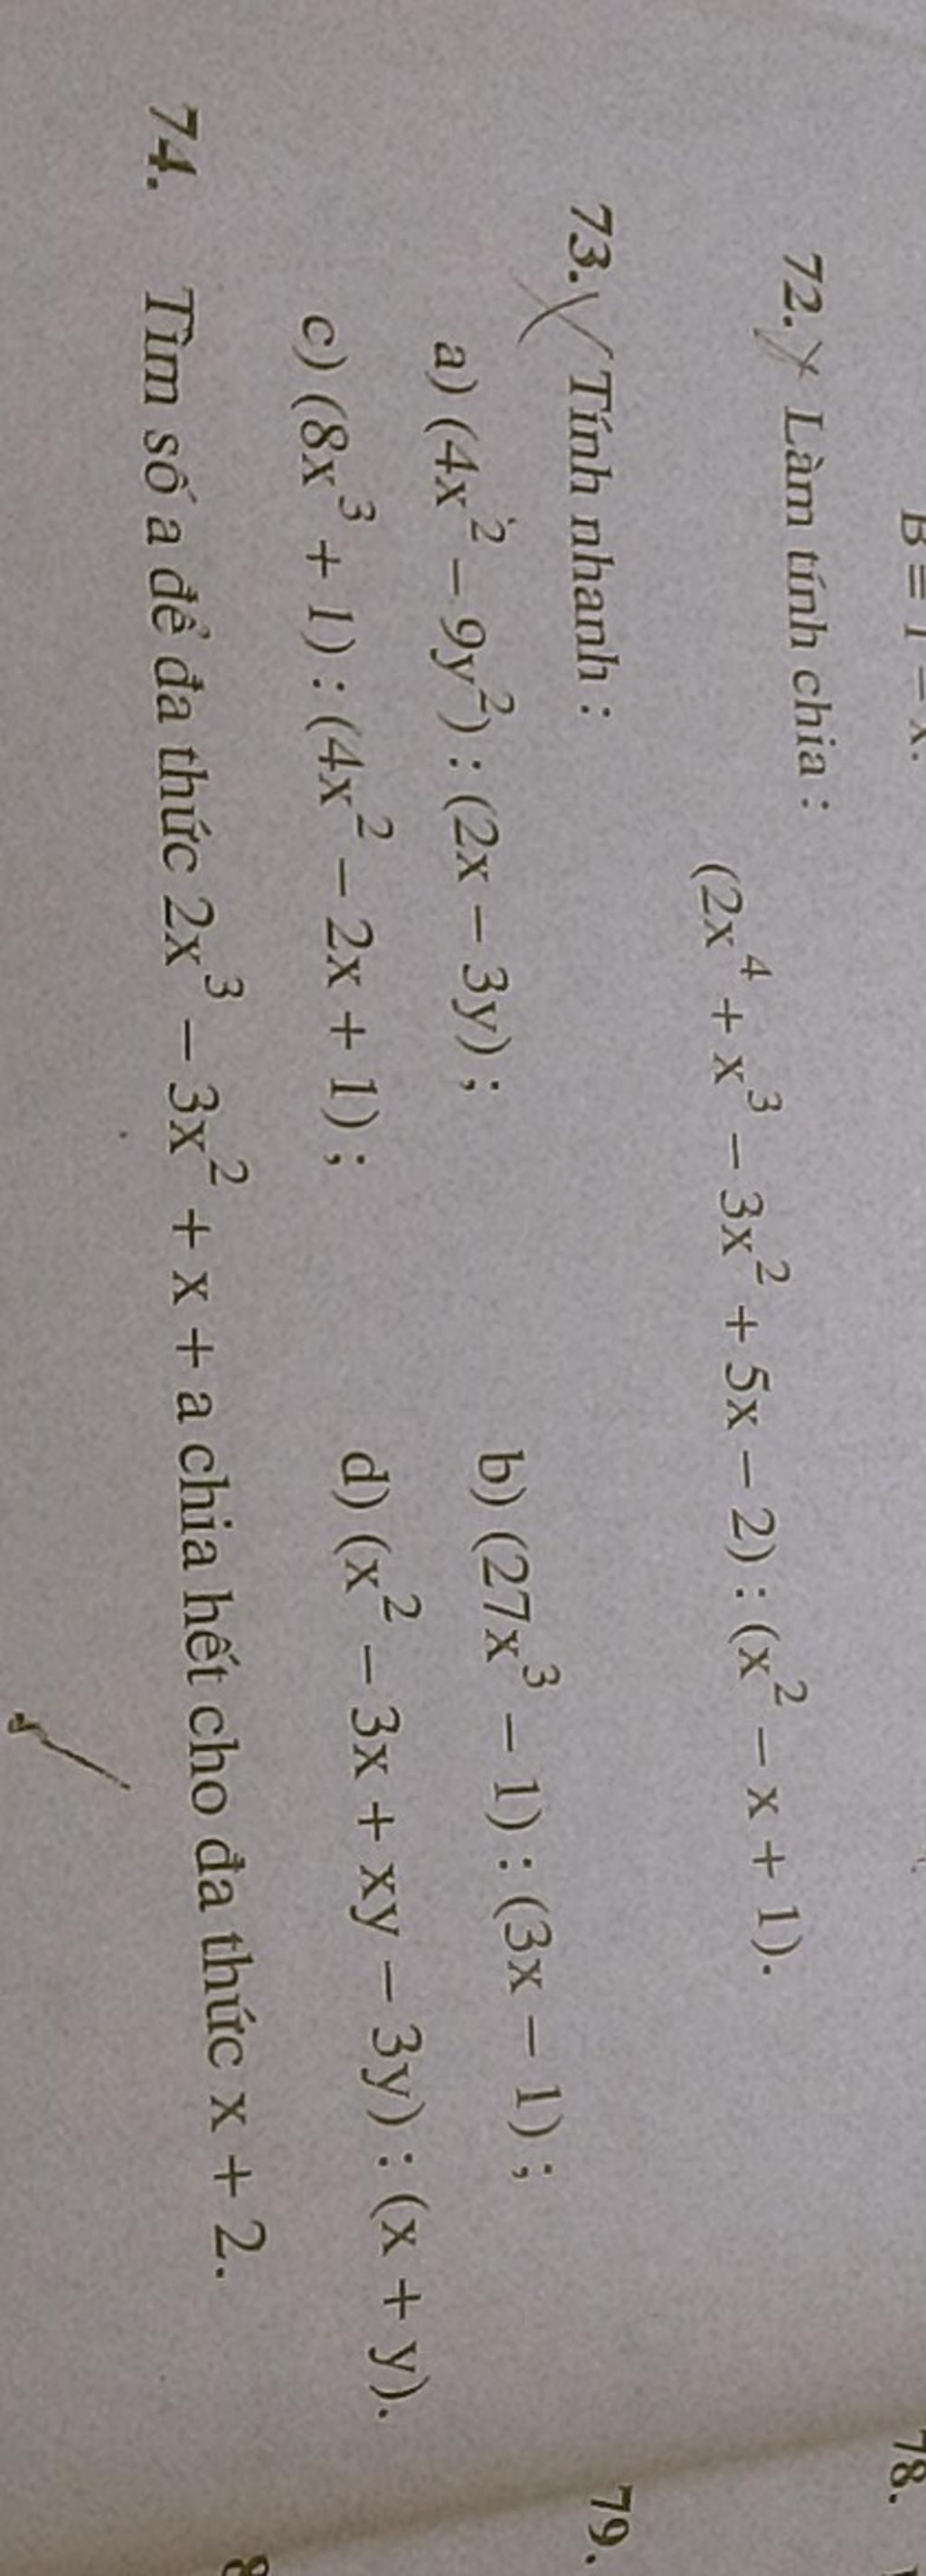 72. Làm tính chia :
(2x⁴ + x³ – 3x² + 5x – 2) : (x² – x + 1).
73. Tính nhanh :
a) (4x² – 9y²) : (2x – 3y) ; b) (27x³ – 1) : (3x – 1) ;
c) (8x³ + 1) : (4x² – 2x + 1) ; d) (x² – 3x + xy – 3y) : (x + y).
74. Tìm số a để đa thức 2x³ – 3x² + x + a chia hết cho đa thức x + 2.
78.
79.